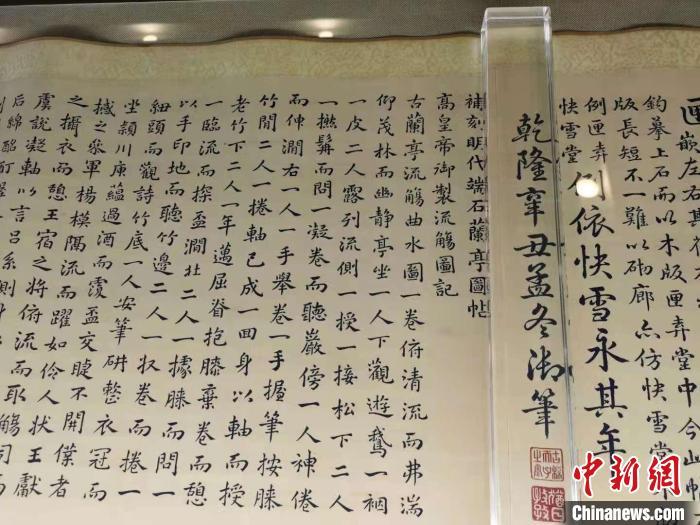 匣嵌左右其
鈎摹上石而以木版匣弆堂中今此帖
版長短不一難以砌廊亦仿快雪堂
例匣弆
快雪堂
例依快雪永其年
乾隆辛丑孟冬御筆
補刻明代端石蘭亭圖帖
高皇帝御製流觴圖記
古蘭亭流觴曲水圖一卷俯清流而弗湍
仰茂林而幽靜亭坐一人下觀遊鵞一裀
一皮二人露列流側一授一接松下二人
一撚髯而問一凝卷而聽巖傍一人神倦
而伸澗右一人一手舉卷一手握筆按膝
竹間二人一捲軸已成一回身以軸而授
老竹下二人一年邁屈脊抱膝棄卷而憩
一臨流而探盃澗壯二人一據膝而問一
以手印地而聽竹邊二人一収卷而捲一
細頭而觀詩竹底一人安筆硏整衣冠而
坐潁川庾蘊過酒而覆盃交睫不開僕者
撼之叅軍楊模隅流而躍如伶人狀王獻
之攝衣而憩王宿之將俯流而取觴司
虞說凝軸以言呂系
后綿酩酊
中新网
Chinanews.com